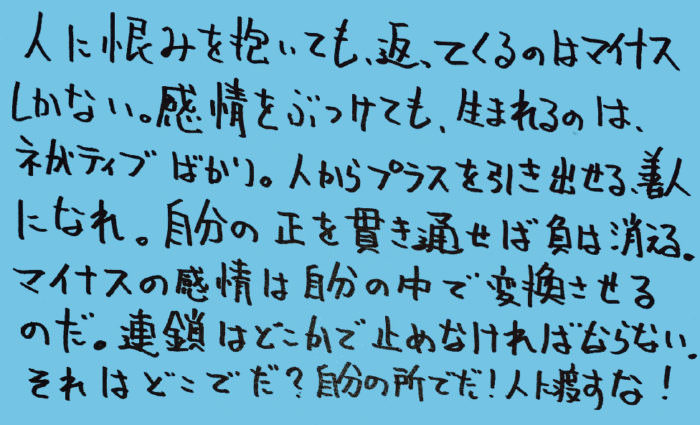 人に恨みを抱いても、返ってくるのはマイナス
しかない。感情をぶつけても、生まれるのは、
ネガティブばかり。人からプラスを引き出せる、善人
になれ。自分の正を貫き通せば負は消える。
マイナスの感情は自分の中で変換させる
のだ。連鎖はどこかで止めなければならない。
それはどこでだ？自分の所でだ！人に渡すな！